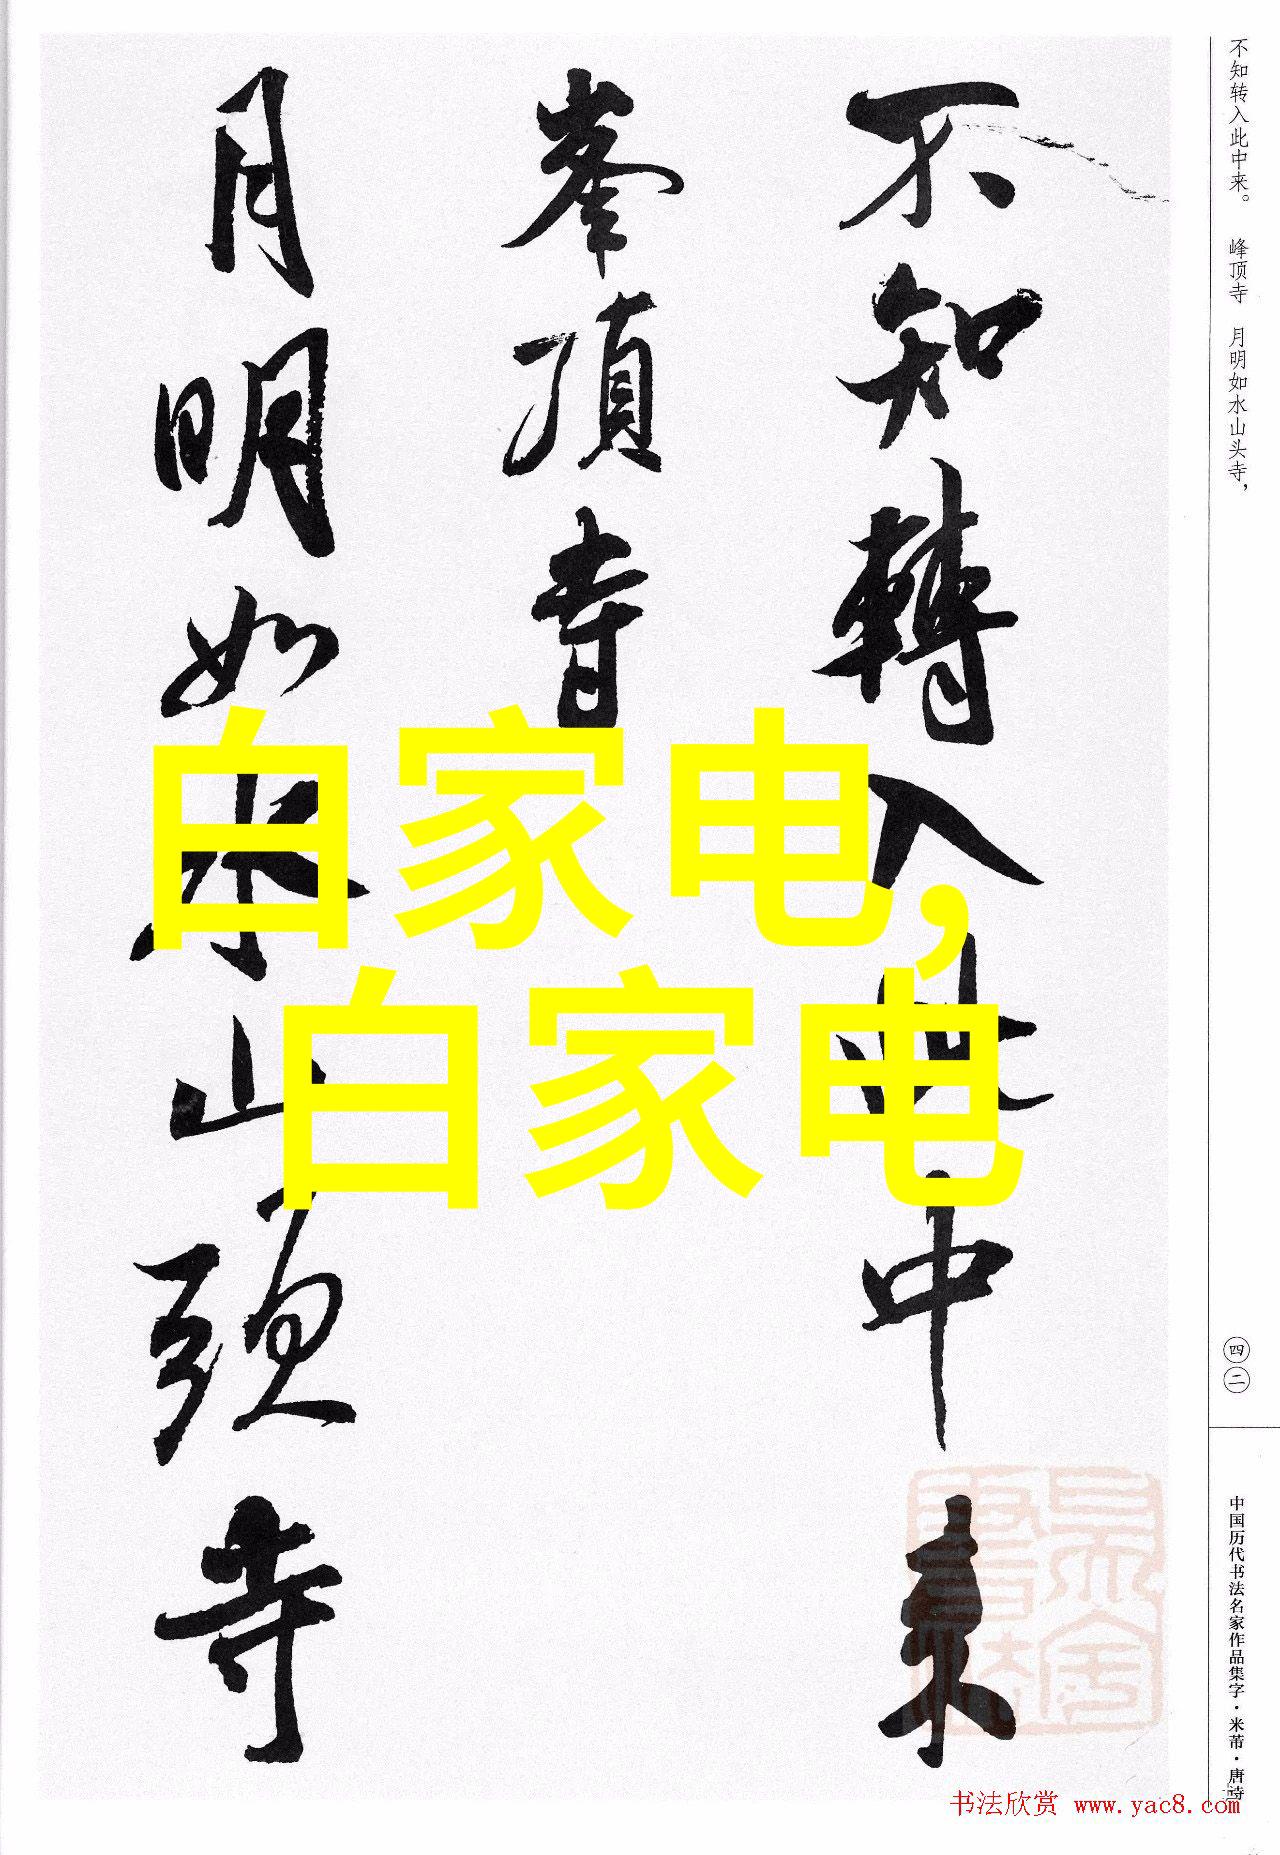 不知转入此中来。 峰顶寺 月明如水山头寺，
不知轉入此中来
峯頂寺
月明如水山頭寺
白家电，
白家电
四二
中国历代书法名家作品集字·米芾·唐诗
书法欣赏 www.yac8.com